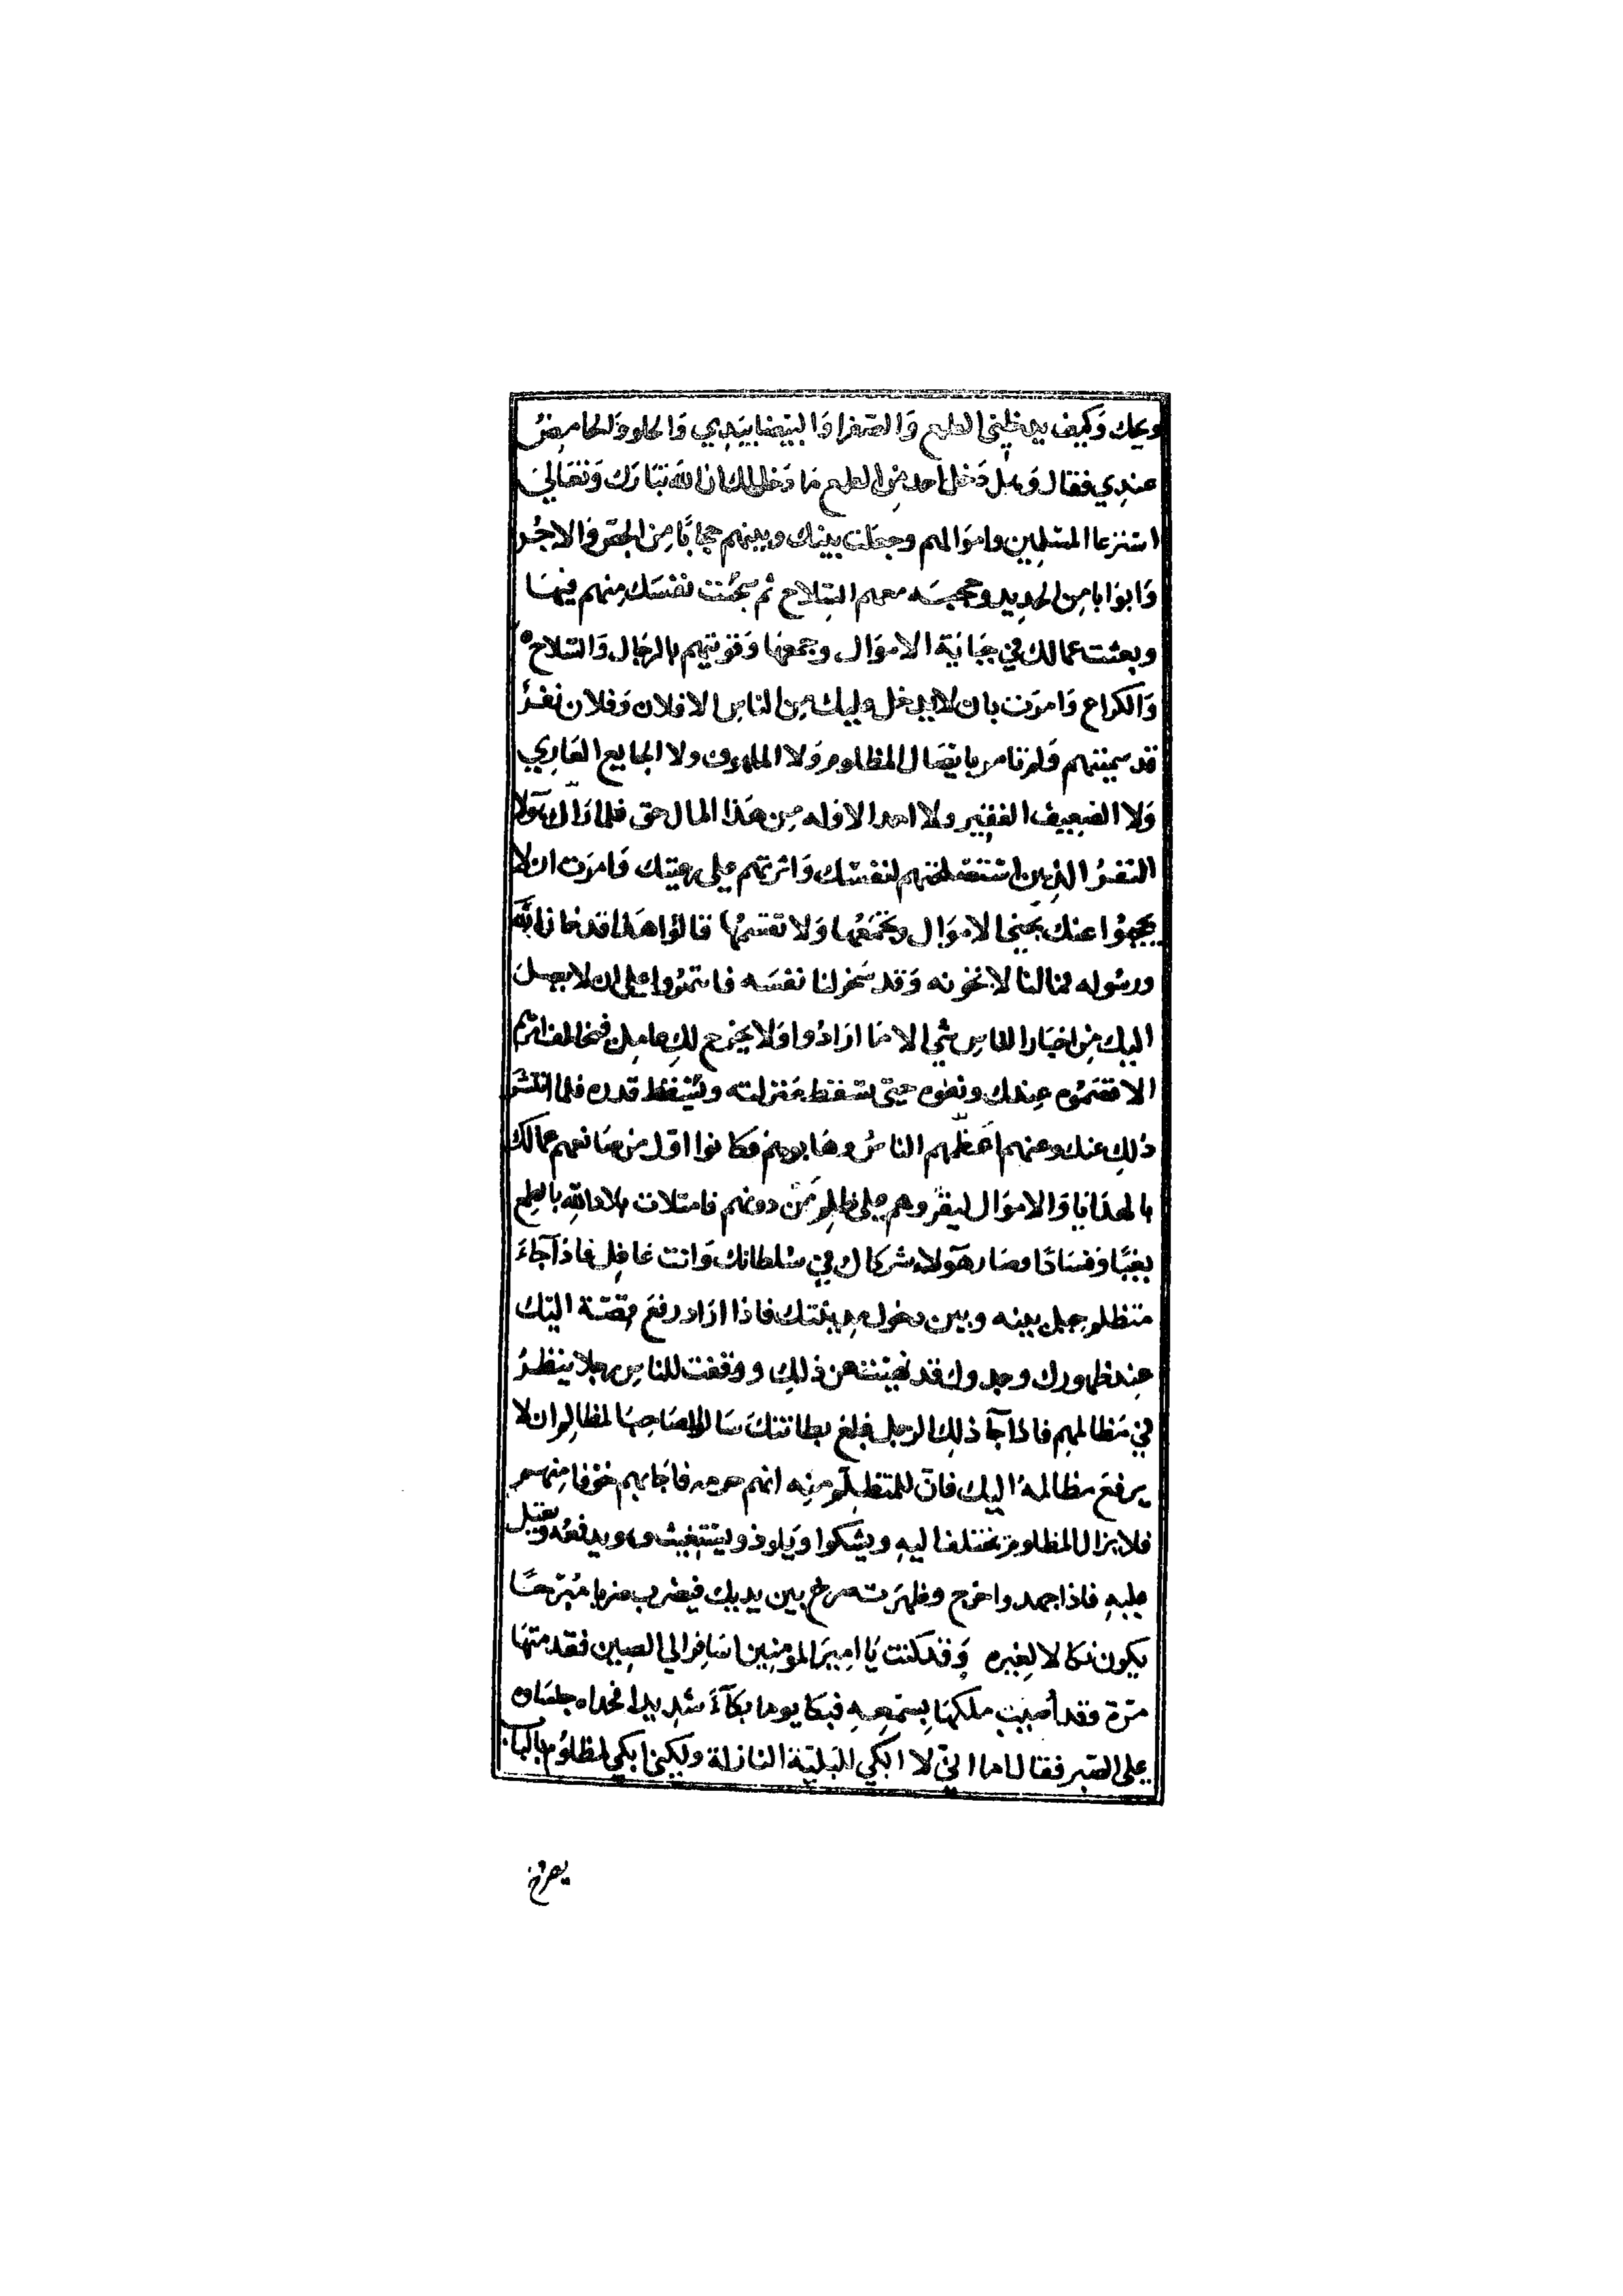 ويحك وَكيف يدخلني الطمع وَالصفرا وَالبيضا بيَدِي وَالحلو وَالحامِضُ
عندِي فقال وَهل دَخل احد مِن الطمع مَا دَخلك ان الله تبَارَك وَتعَاليَ
استرعا المسْلمِين وامْوَالهم وجعَلت بينك وبينهم حجَابًا مِن الجصّ وَالاجُر
وَابوَابا مِن الحدِيد وحجبَه معهم السِّلاح ثم سَجَنْت نفسَك مِنهم فيهَا
وبعثت عمالك في جبَايَة الاموَال وجمعهَا وَقويتهم بالرجَال وَالسّلاح
وَالكراع وَامرَت بان لا يدخل عليك مِن الناس الا فلان وَفلان نفرٌ
قد سميتهم وَلم تامر بايصَال المظلوم وَلا الملهوف ولا الجايع العَارِي
وَلا الضعِيف الفقِير ولا احد الا وَله مِن هَذا المال حق فلما رَاك هَولا
النفرُ الذِين استخلصتهم لنفسك وَاثرتهم على رعيتك وَامرَت ان لا
يحجبُوا عنك تجبي الاموَال وَتجمَعُها وَلا تقسمهَا قالوُا هَذا قد خَان الله
ورسُوله فما لنا لا نخونه وَقد سَخر لنا نفسَه فاتمرُوا على ان لا يصِل
اليك مِن اخبَار الناس شي الا مَا ارَادُوا وَلا يخرج لك عامِل فيخَالف امرهم
الا قصَمُوه عِندك ونفوه حتىّ تسقط مَنزلته ويَسقط قدره فلما انتشَر
ذلِك عنك وعنهم اعظمهم الناسُ وهَابوهم فكَانوا اوّل من صَانعهم عمالك
بالهدَايا وَالاموَال ليقووا بهم على ظلم مَن دونهم فامتلات بلاد الله بالطمع
بغيًا وَفسَادًا وصَار هَؤلاء شركاك في سُلطانك وَانت غافِل فاذا جَاءَ
متظلم حِيل بينه وبين دخول مدِينتك فاذا ارَاد رفعَ قصّة اليَك
عِند ظهورك وجدوك قد نهيت عن ذلِك ووقفت للناس رجلا ينظرُ
في مَظالمهِم فاذا جَآ ذلِك الرجل فبلغ بطانتكَ سَالوا صَاحِب المظالم ان لا
يرفعَ مظالمهُ اليك فانّ للمتظلّم منه انهم حرمه فاجَابهم خوْفا مِنهم
فلا يزال المظلوم يختلف اليهِ ويشكوا وَيلوذ ويسْتغيث وهو يدفعُه ويعتل
عليهِ فاذا جهد واخرج وظهرَت صرخ بين يديك فيضرب ضربا مُبَرّحًا
يكون نكالا لِغيره وَقد كنت يَا امِيرَ المؤمِنِين اسَافر الي الصِين فقدمتهَا
مَرّة وقد اُصيب ملكهَا بِسَمعِهِ فبكا يوما بكآءً شدِيدا فحداه جلسَاه
على الصّبر فقال اما انّي لا ابكي للبَليّة النازلة ولكِني ابكي لمظلوُم بالبَاب
يصرخ